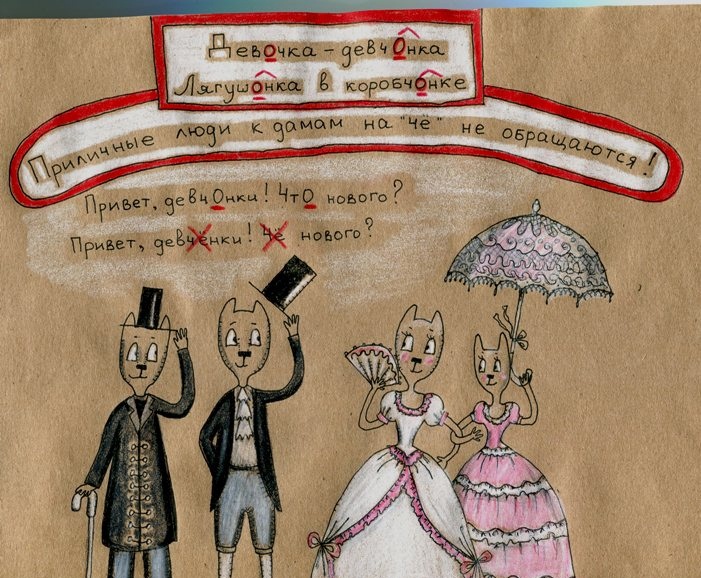 Девочка - девчОнка
Лягушонка в коробчонке
Приличные люди к дамам на "чё" не обращаются!
Привет, девчОнки! ЧтО нового?
Привет, девчёнки! Чё нового?